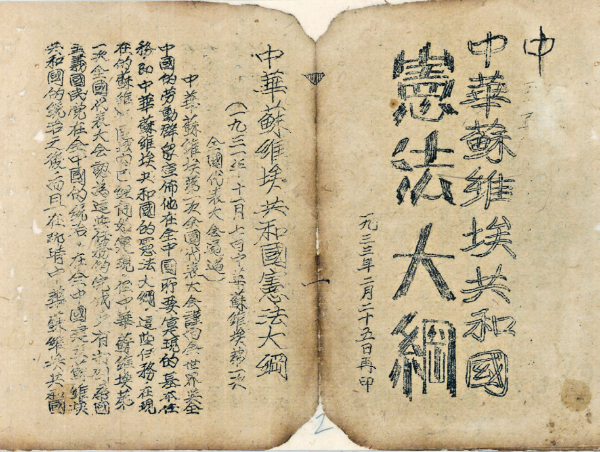 中
中華蘇維埃共和國
憲法大綱
一九三三年二月二十五日再印
中華蘇維埃共和國憲法大綱
(一九三一年十一月七日中華蘇維埃第一次
全國代表大會通過)
中華蘇維埃第一次全國代表大會謹向全世界與全
中國的勞動群眾宣佈他在全中國所要實現的基本任
務即中華蘇維埃共和國的憲法大綱,這些任務在現
在的蘇維埃區域內已經開始實現但中華蘇維埃第
一次全國代表大會認為這些任務的完成只有在打倒帝國
主義國民黨在全中國的統治,在全中國建立蘇維埃
共和國的統治之後而且在那時中華蘇維埃共和國